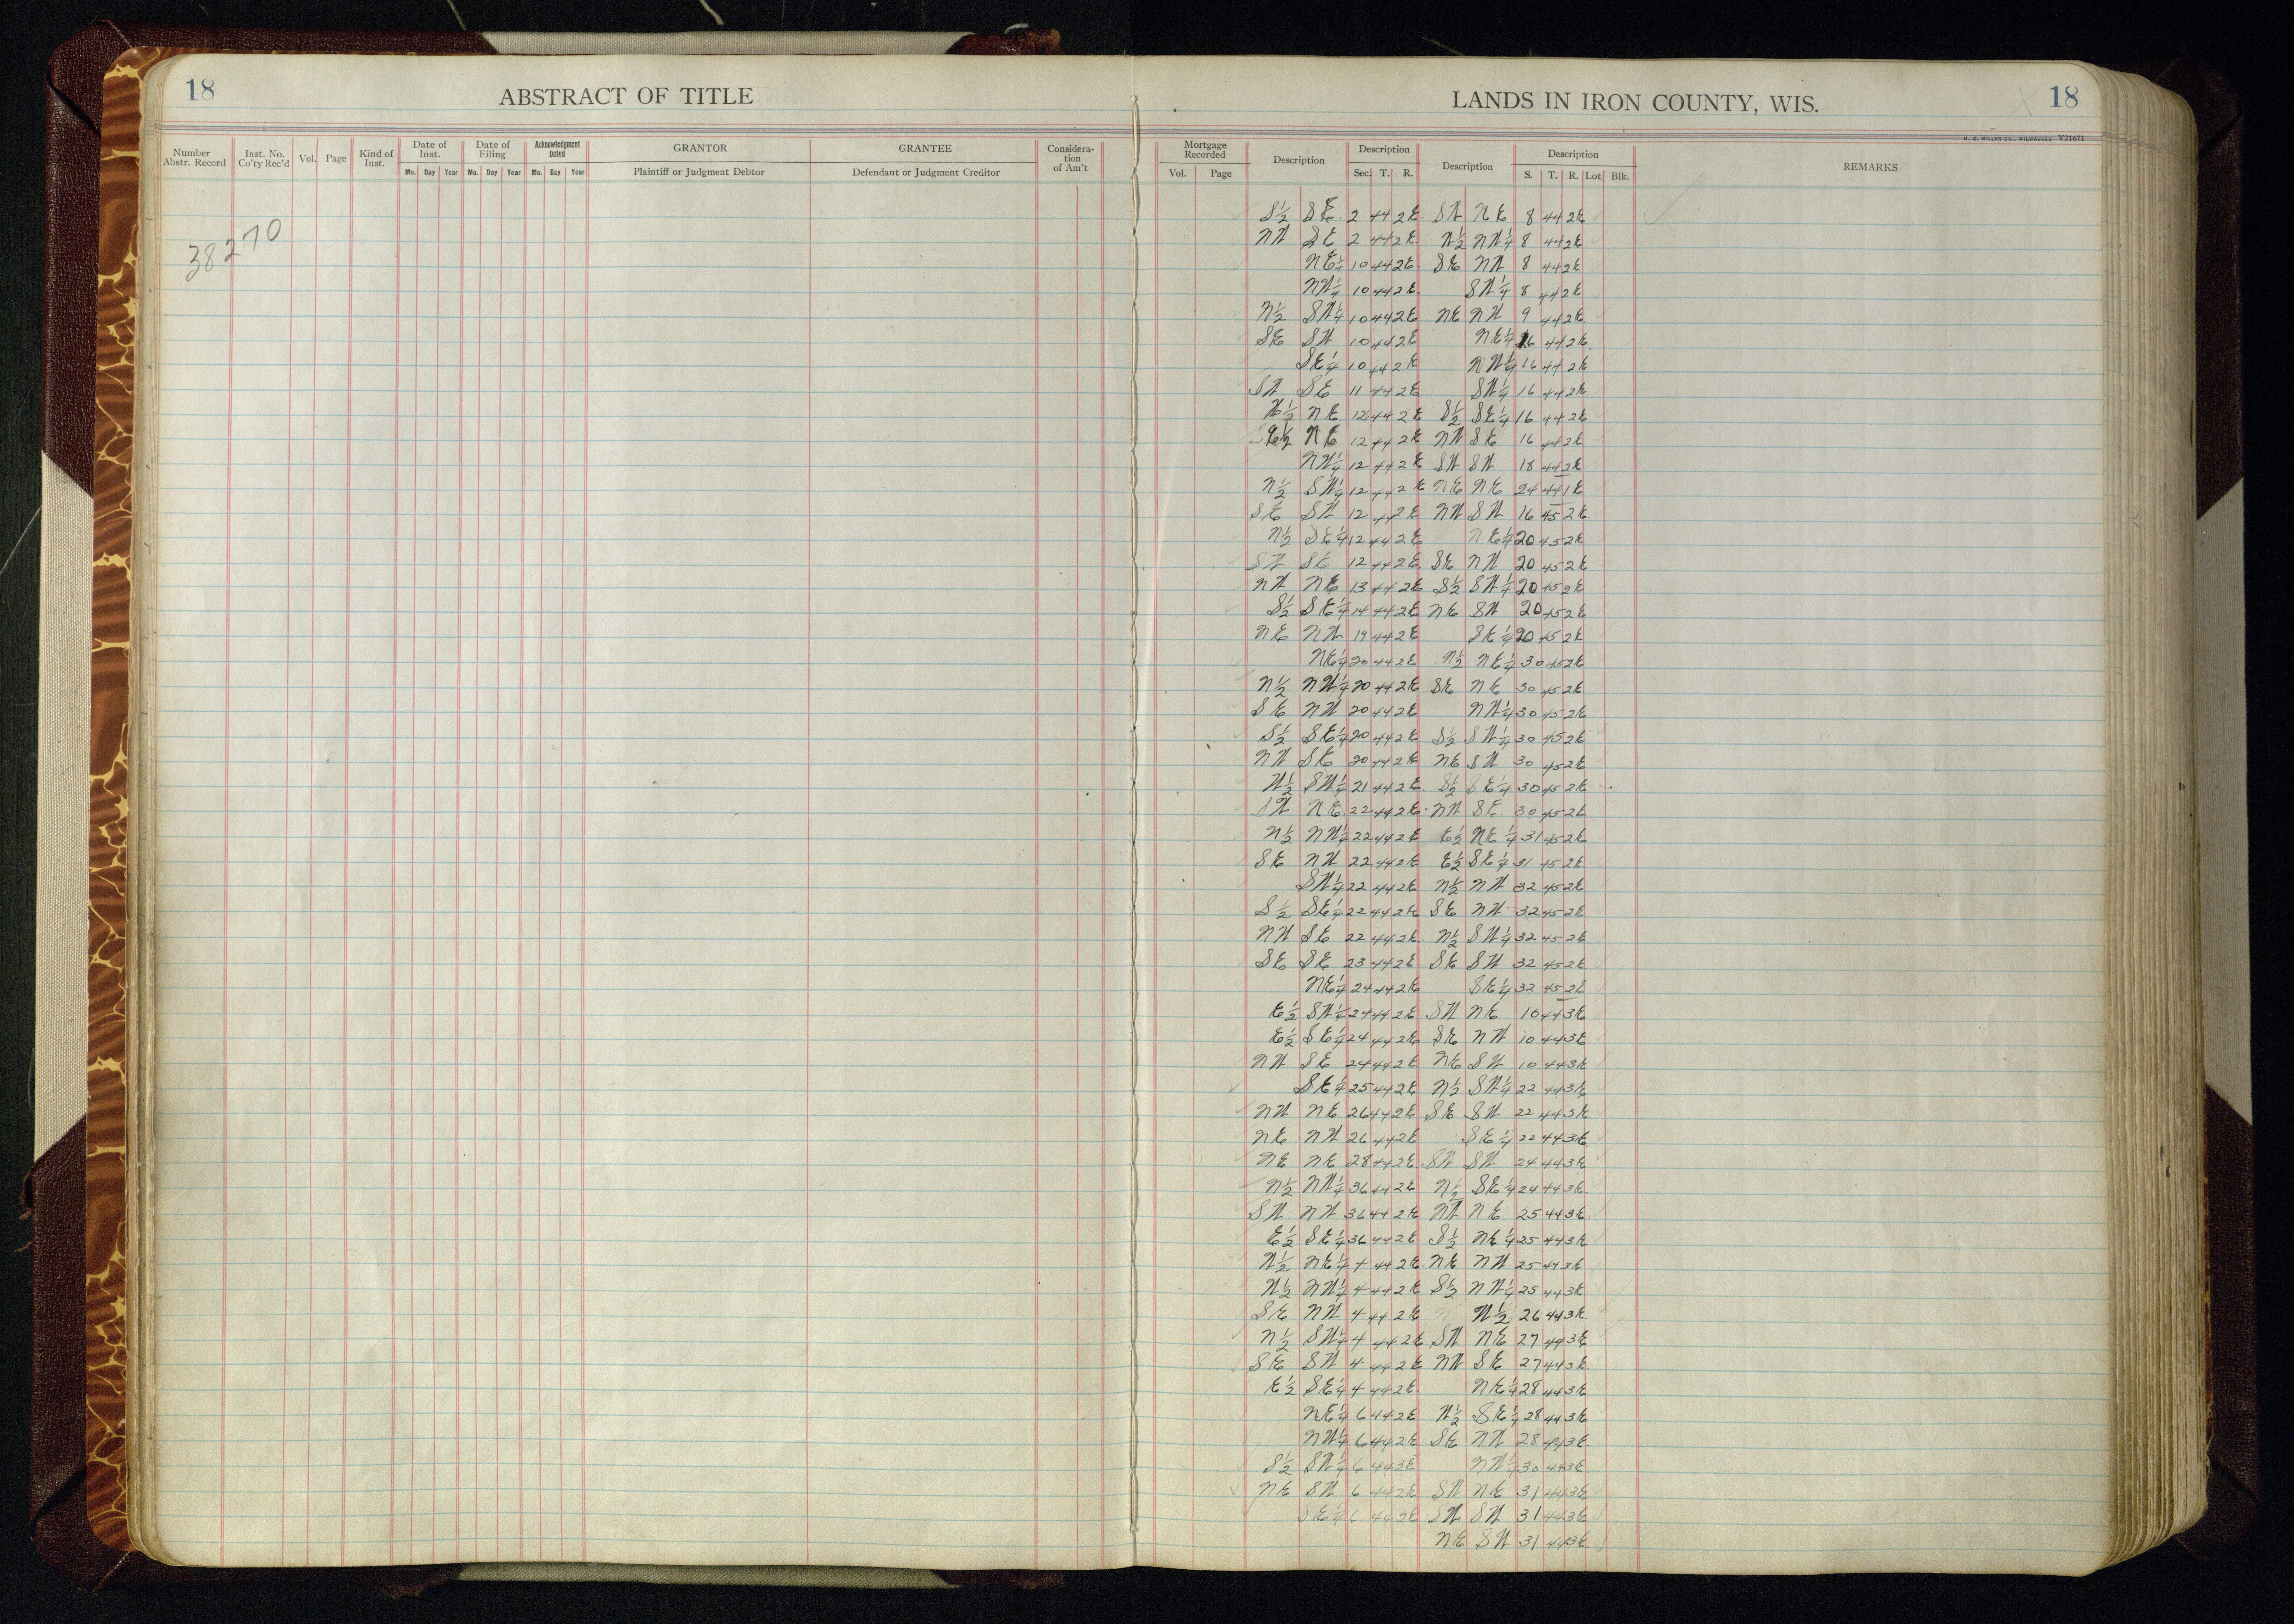 18
ABSTRACT OF TITLE
LANDS IN IRON COUNTY, WIS.
18
H. C. MILLER CO., MILWAUKEE V21671
Number Abstr. Record | Inst. No. Co'ty Rec'd | Vol. | Page | Kind of Inst. | Date of Inst. Mo. Day Year | Date of Filing Mo. Day Year | Acknowledgment Dated Mo. Day Year | GRANTOR Plaintiff or Judgment Debtor | GRANTEE Defendant or Judgment Creditor | Considera-tion of Am't | Mortgage Recorded Vol. Page | Description | Description Sec. T. R. | Description | Description S. T. R. Lot Blk. | REMARKS
38270
S½ SE 2 44 2E SW NE 8 44 2E
NW SE 2 44 2E W½ NW¼ 8 44 2E
NE¼ 10 44 2E SE NW 8 44 2E
NW¼ 10 44 2E SW¼ 8 44 2E
N½ SW¼ 10 44 2E NE NW 9 44 2E
SE SW 10 44 2E NE¼ 16 44 2E
SE¼ 10 44 2E NW¼ 16 44 2E
SW SE 11 44 2E SW¼ 16 44 2E
W½ NE 12 44 2E S½ SE¼ 16 44 2E
NE 12 44 2E NW SE 16 44 2E
NW¼ 12 44 2E SW SW 18 44 2E
N½ SW¼ 12 44 2E NE NE 24 44 1E
SE SW 12 44 2E NW SW 16 45 2E
N½ SE¼ 12 44 2E NE¼ 20 45 2E
SW SE 12 44 2E SE NW 20 45 2E
NW NE 13 44 2E S½ SW¼ 20 45 2E
S½ SE¼ 14 44 2E NE SW 20 45 2E
NE NW 19 44 2E SE¼ 20 45 2E
NE¼ 20 44 2E N½ NE¼ 30 45 2E
N½ NW¼ 20 44 2E SE NE 30 45 2E
SE NW 20 44 2E NW¼ 30 45 2E
S½ SE¼ 20 44 2E S½ SW¼ 30 45 2E
NW SE 20 44 2E NE SW 30 45 2E
W½ SW¼ 21 44 2E S½ SE¼ 30 45 2E
SW NE 22 44 2E NW SE 30 45 2E
N½ NW¼ 22 44 2E E½ NE¼ 31 45 2E
SE NW 22 44 2E E½ SE¼ 31 45 2E
SW¼ 22 44 2E N½ NW 32 45 2E
S½ SE¼ 22 44 2E SE NW 32 45 2E
NW SE 22 44 2E N½ SW¼ 32 45 2E
SE SE 23 44 2E SE SW 32 45 2E
NE¼ 24 44 2E SE¼ 32 45 2E
E½ SW¼ 24 44 2E SW NE 10 44 3E
E½ SE¼ 24 44 2E SE NW 10 44 3E
NW SE 24 44 2E NE SW 10 44 3E
SE¼ 25 44 2E N½ SW¼ 22 44 3E
NW NE 26 44 2E SE SW 22 44 3E
NE NW 26 44 2E SE¼ 22 44 3E
NE NE 28 44 2E SW SW 24 44 3E
N½ NW¼ 36 44 2E N½ SE¼ 24 44 3E
SW NW 36 44 2E NW NE 25 44 3E
E½ SE¼ 36 44 2E S½ NE¼ 25 44 3E
W½ NE¼ 4 44 2E NE NW 25 44 3E
W½ NW¼ 4 44 2E S½ NW¼ 25 44 3E
SE NW 4 44 2E W½ 26 44 3E
N½ SW¼ 4 44 2E SW NE 27 44 3E
SE SW 4 44 2E NW SE 27 44 3E
E½ SE¼ 4 44 2E NE¼ 28 44 3E
NE¼ 6 44 2E W½ SE¼ 28 44 3E
NW¼ 6 44 2E SE NW 28 44 3E
S½ SW¼ 6 44 2E NW¼ 30 44 3E
NE SW 6 44 2E SW NE 31 44 3E
SE¼ 6 44 2E SW SW 31 44 3E
NE SW 31 44 3E